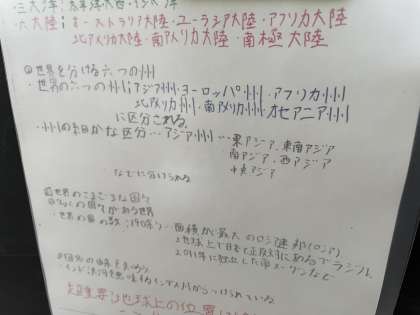 三大洋:太平洋大西・インド洋
六大陸:オーストラリア大陸・ユーラシア大陸・アフリカ大陸
北アメリカ大陸・南アメリカ大陸・南極大陸
世界を分ける六つの州
・世界の六つの州:アジア州・ヨーロッパ州・アフリカ州
北アメリカ州・南アメリカ州・オセアニア州
に区分される。
・州の細かな区分…アジア州…東アジア、東南アジア
南アジア、西アジア
中央アジア
などに分けられる
世界のさまざまな国々
多くの国々がある世界
・世界の国の数:190
面積が最大のロシア連邦(ロシア)
地球上で日本と正反対にあるブラジル、
2011年に独立した南スーダンなど
インド洋
つけられている
超重要:地球上の位置